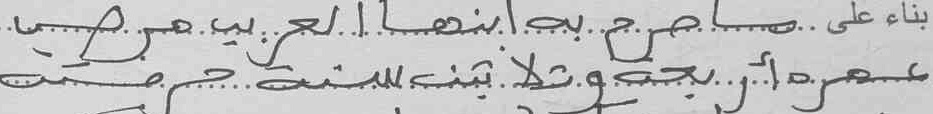 بناء على ما صرح به ابنها العربي مرضي
عمره أربعة وثلاثين سنة حرفته